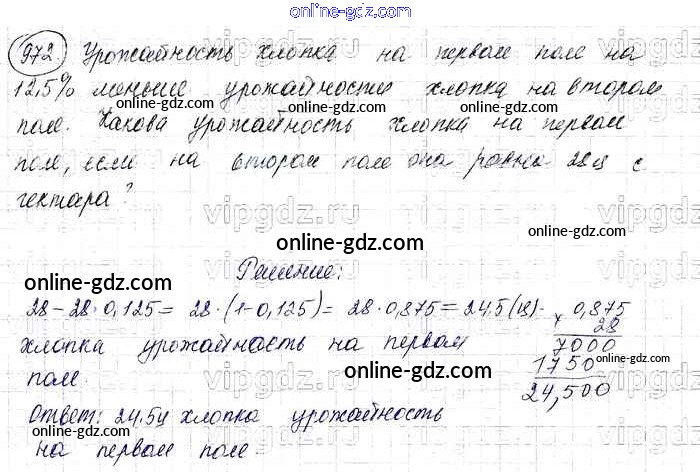 online-gdz.com
972 Урожайность хлопка на первом поле на
12,5% меньше урожайности хлопка на втором
поле. Какова урожайность хлопка на первом
поле, если на втором поле она равна 28ц с
гектара?
Решение:
28-28·0,125= 28·(1-0,125)= 28·0,875=24,5(ц)-
хлопка урожайность на первом
поле.
× 0,875
28
7000
1750
24,500
Ответ: 24.5ц хлопка урожайность
на первом поле
vipgdz.ru
online-gdz.com
online-gdz.com
online-gdz.com
online-gdz.com
online-gdz.com
online-gdz.com
online-gdz.com
online-gdz.com
online-gdz.com